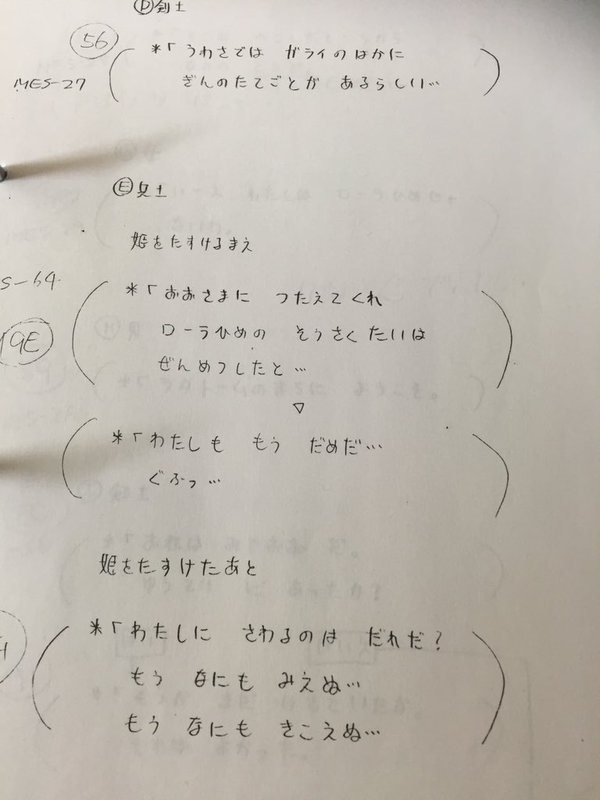 Ⓓ剣士
56
*「うわさでは ガライのはかに
MES-27
ぎんのたてごとが あるらしい…
Ⓔ兵士
姫をたすけるまえ
S-64
*「おおさまに つたえてくれ
ローラひめの そうさくたいは
19E
ぜんめつしたと…
▽
*「わたしも もう だめだ…
ぐふっ…
姫をたすけたあと
*「わたしに さわるのは だれだ?
もう なにも みえぬ…
もう なにも きこえぬ…